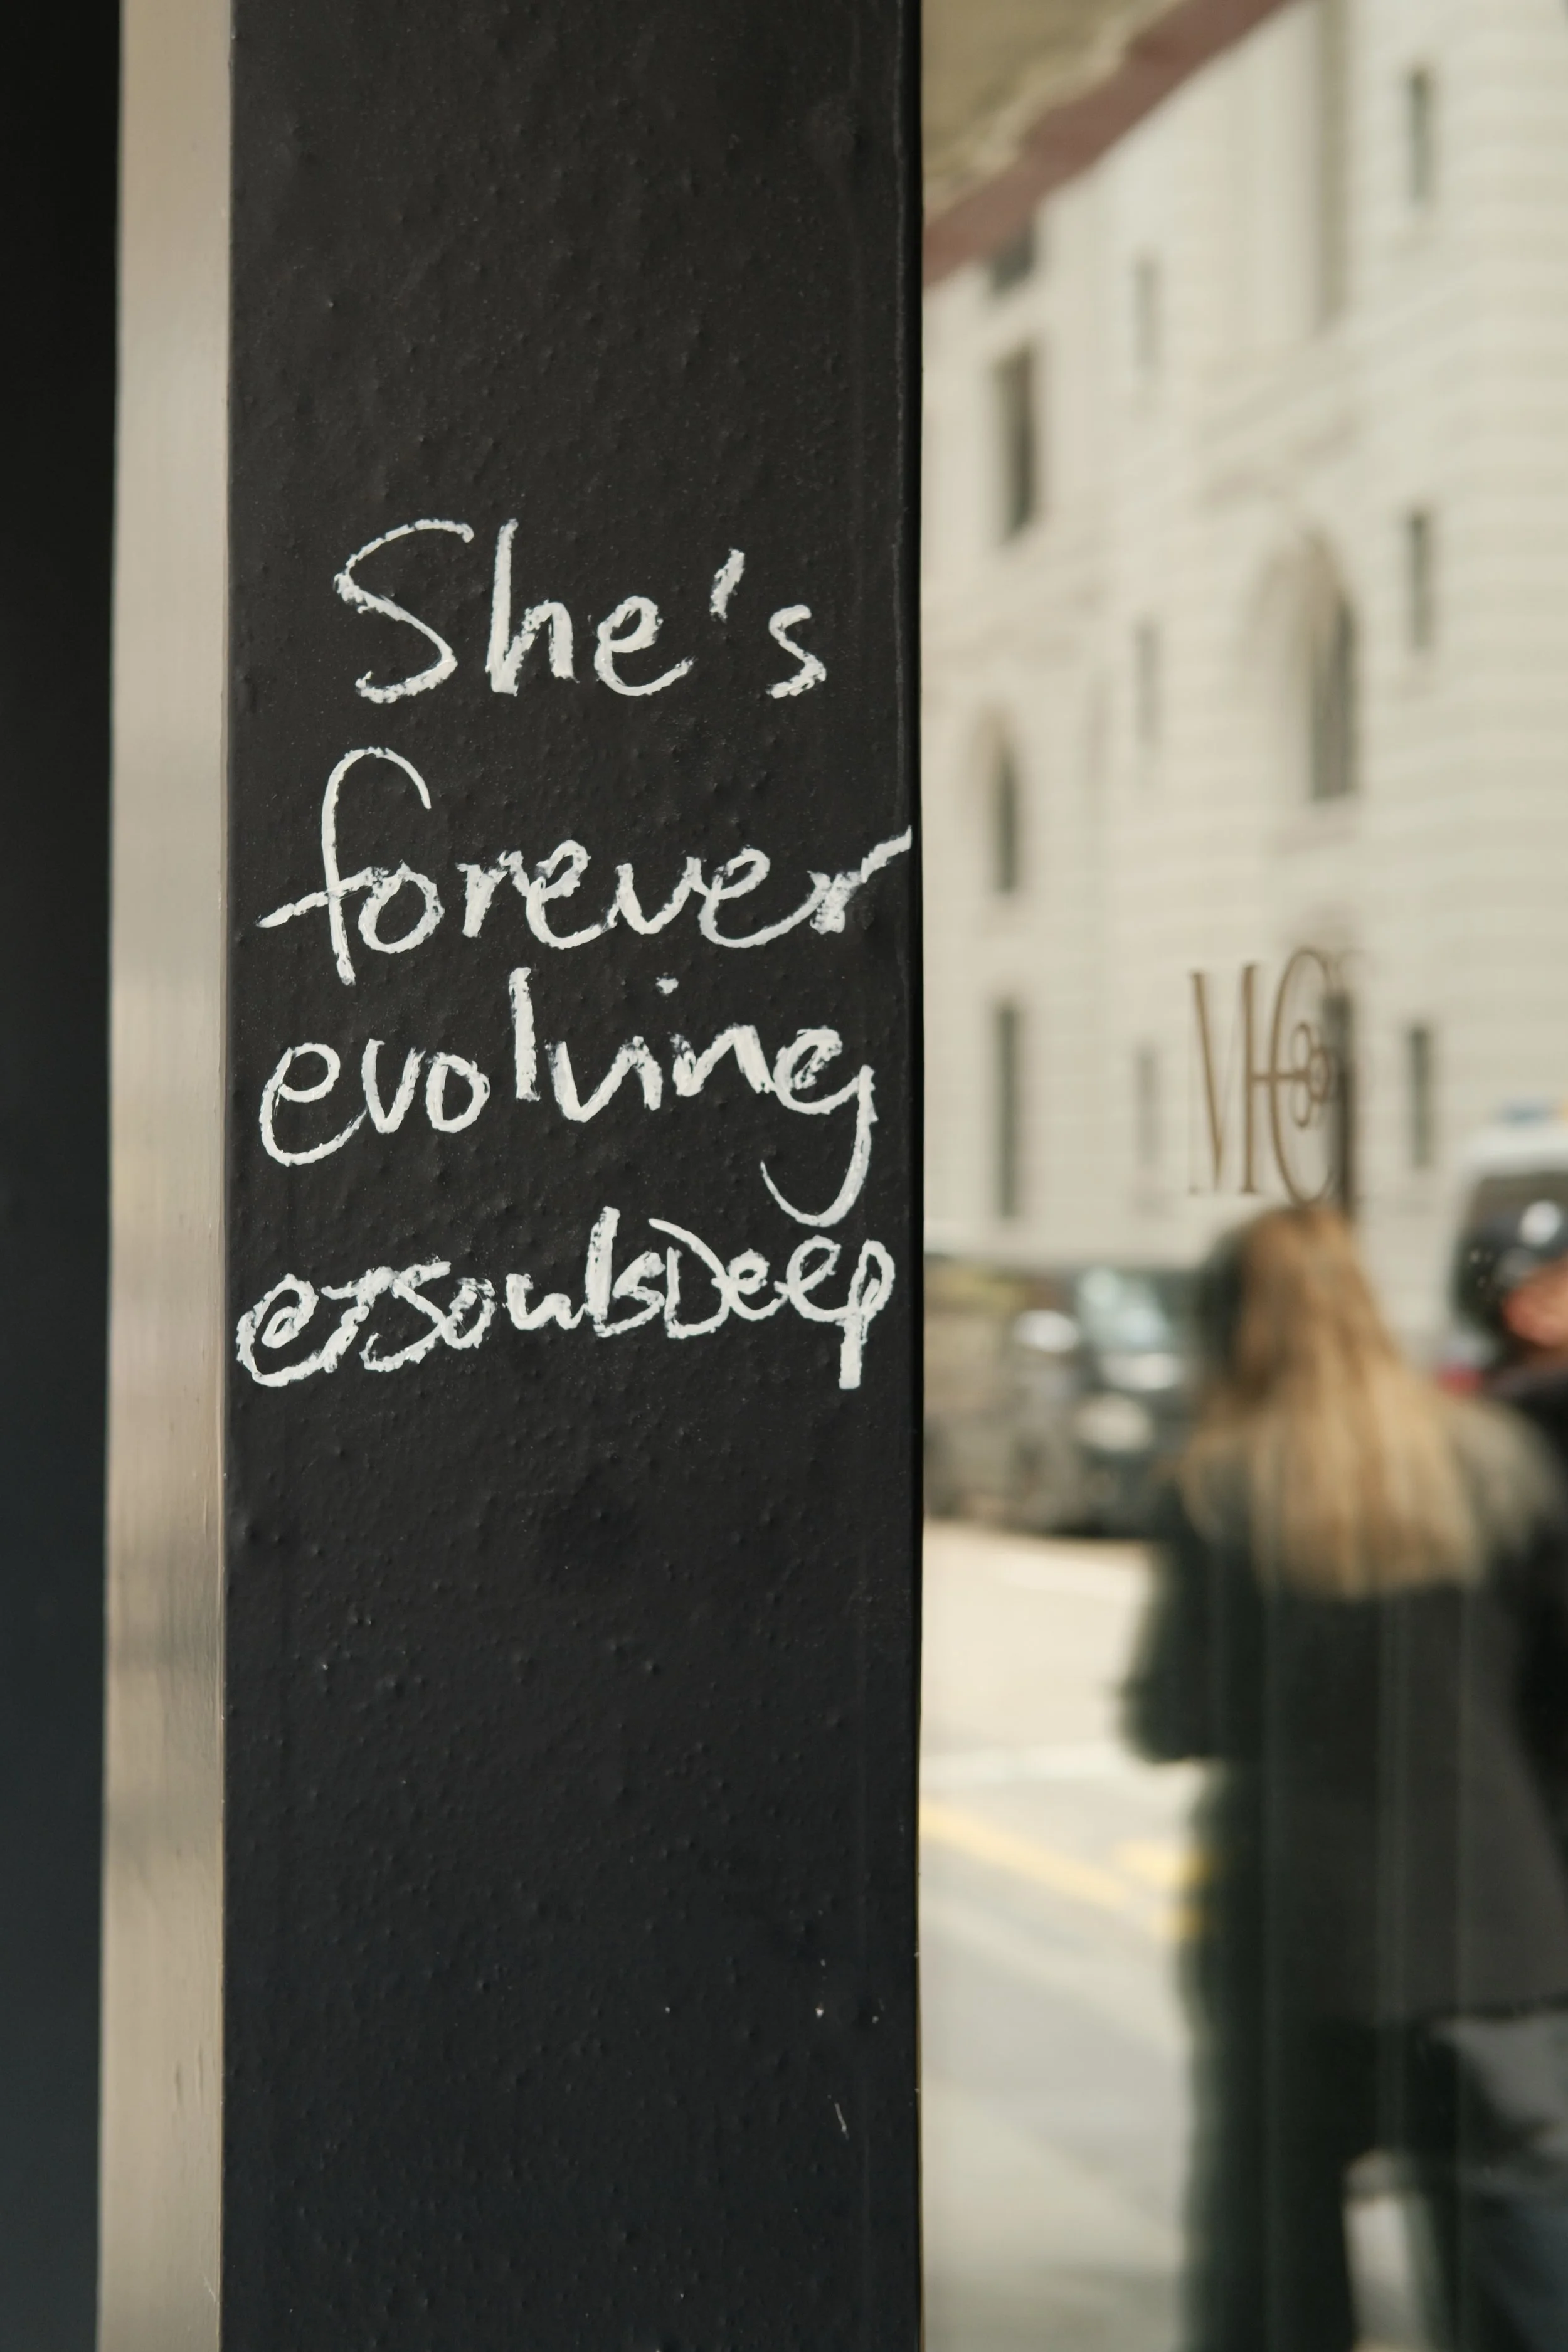 She's
forever
evolving
@7SoulsDeep